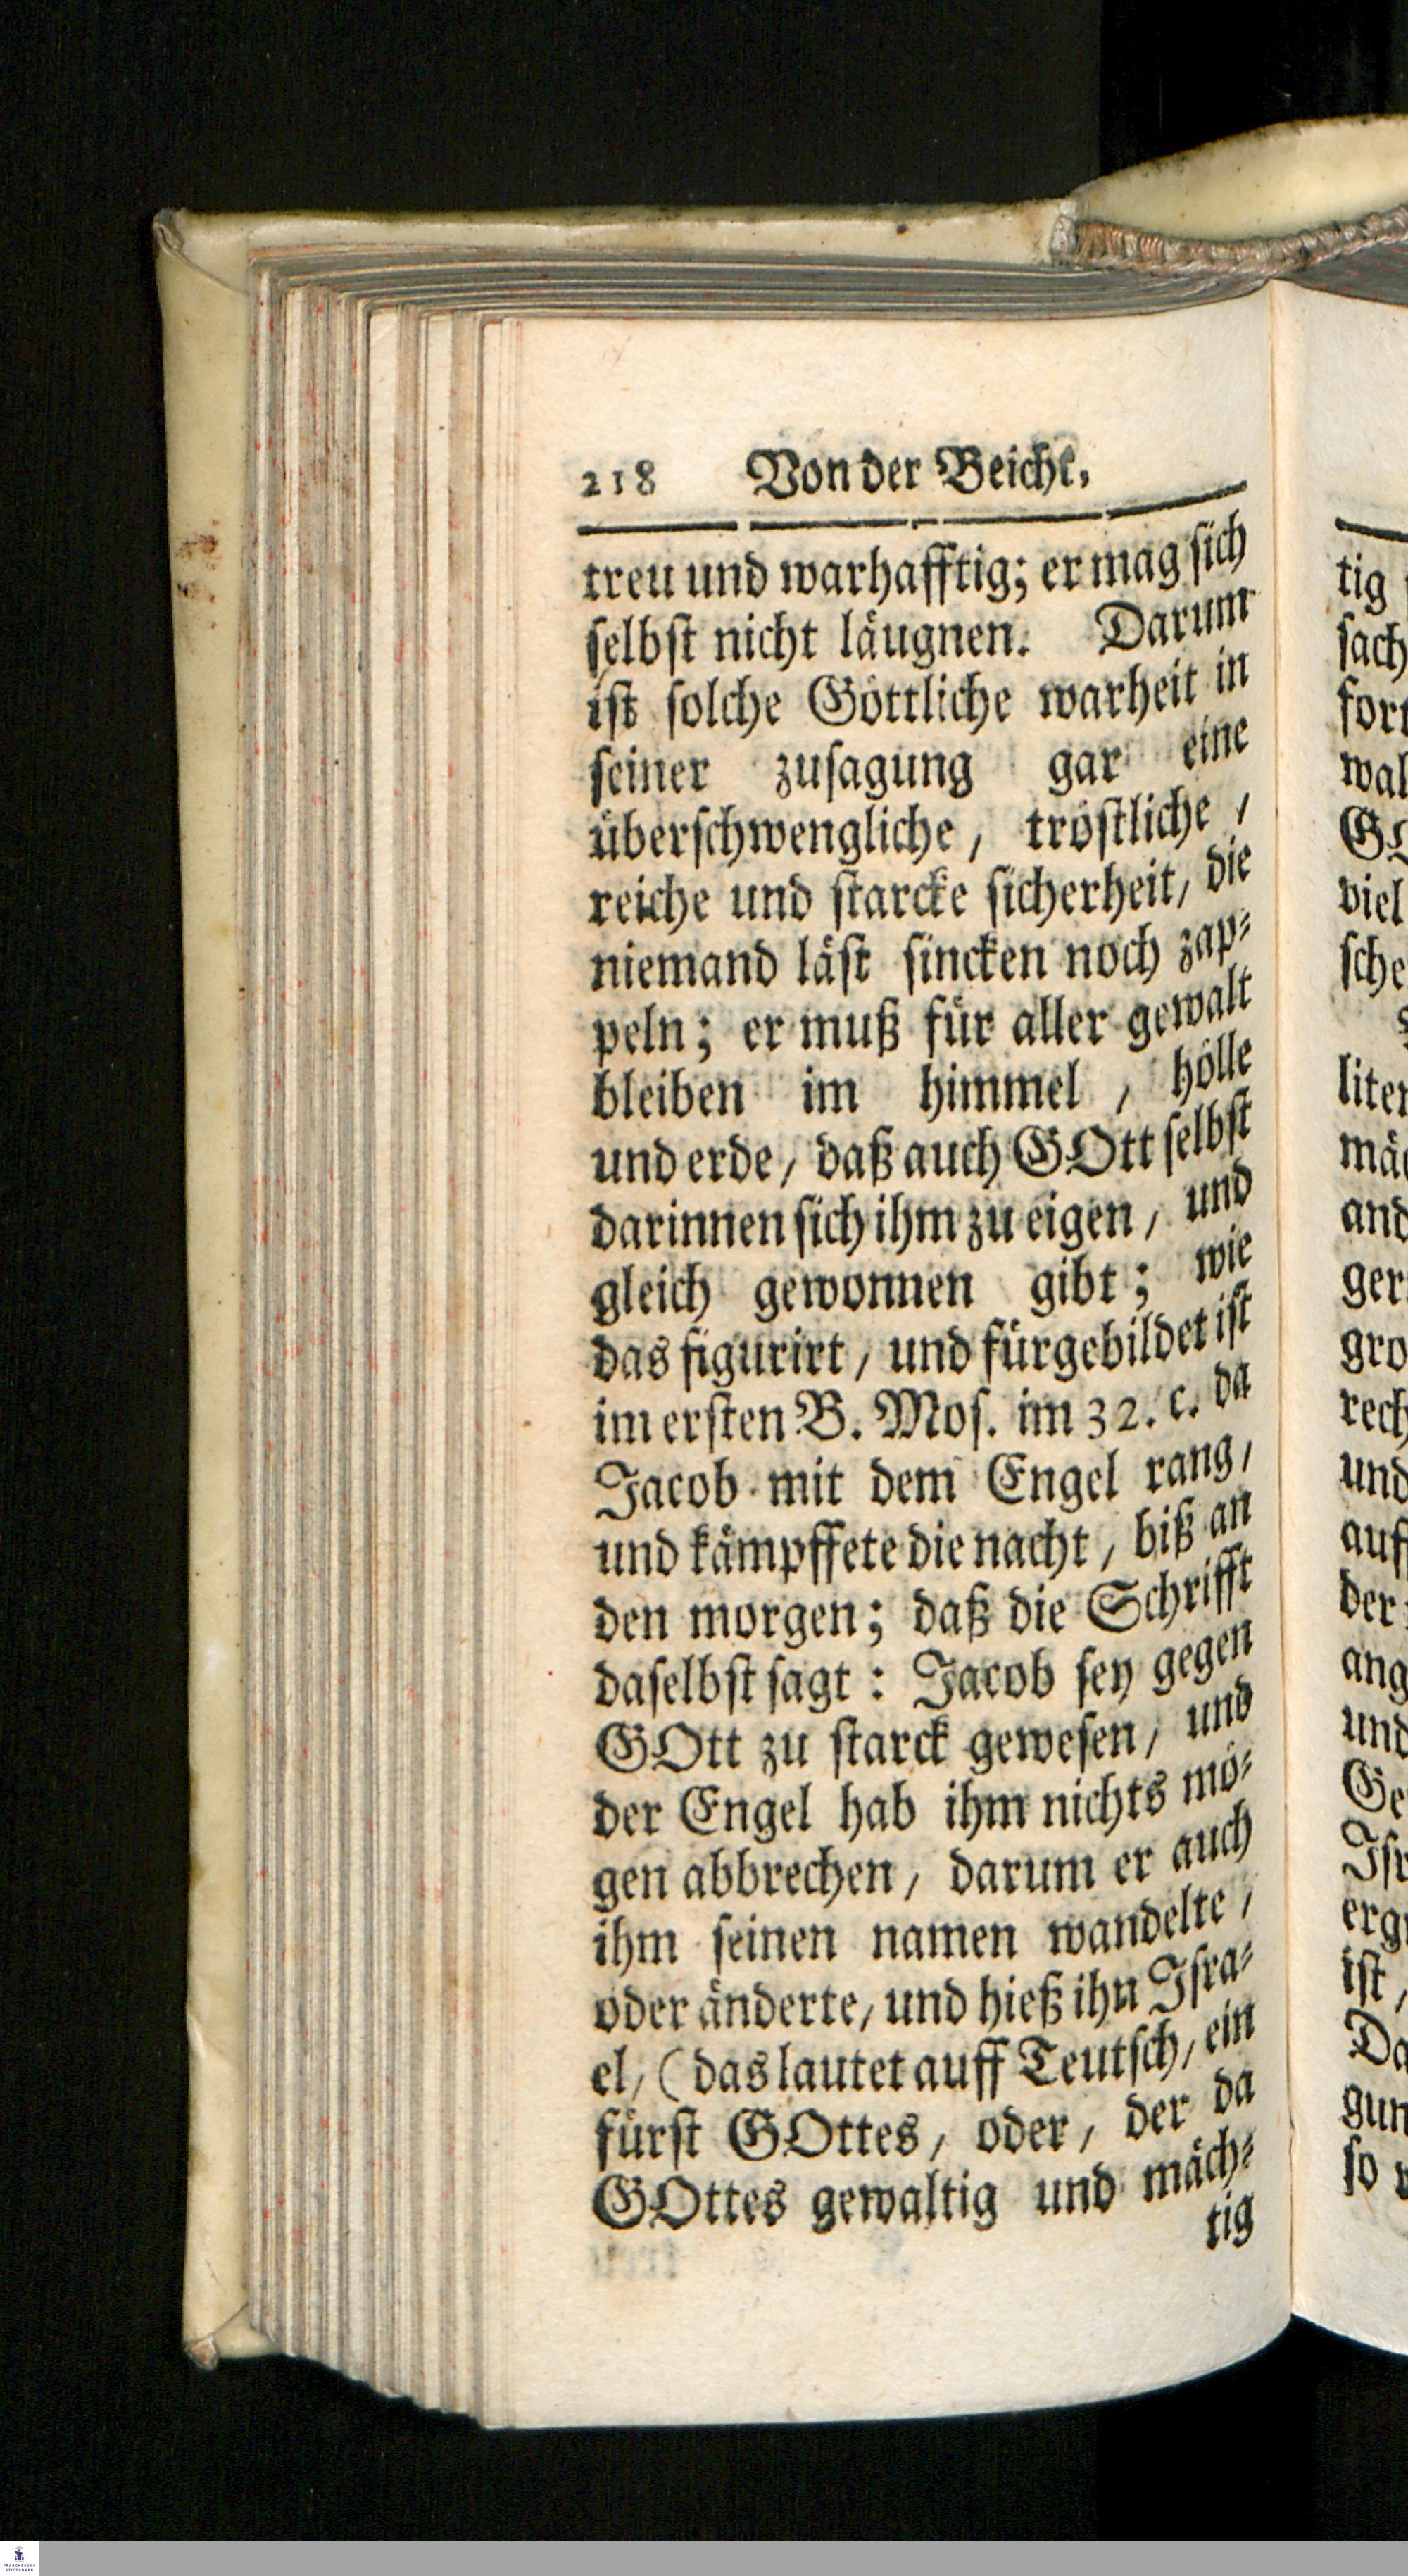 218 Von der Beicht,
treu und warhafftig; er mag ſich
ſelbſt nicht läugnen. Darum
iſt ſolche Göttliche warheit in
ſeiner zuſagung gar eine
überſchwengliche, tröſtliche,
reiche und ſtarcke ſicherheit, die
niemand läſt ſincken noch zap⸗
peln; er muß für aller gewalt
bleiben im himmel, hölle
und erde, daß auch GOtt ſelbſt
darinnen ſich ihm zu eigen, und
gleich gewonnen gibt; wie
das figurirt, und fürgebildet iſt
im erſten B. Moſ. im 32. c. da
Jacob mit dem Engel rang,
und kämpffete die nacht, biß an
den morgen; daß die Schrifft
daſelbſt ſagt: Jacob ſey gegen
GOtt zu ſtarck geweſen, und
der Engel hab ihm nichts mö⸗
gen abbrechen, darum er auch
ihm ſeinen namen wandelte,
oder änderte, und hieß ihn Iſra⸗
el, (das lautet auff Teutſch, ein
fürſt GOttes, oder, der da
GOttes gewaltig und mäch⸗
tig
tig
ſach
wal
viel
ſche
liter
and
gro
rech
und
auf
der
ang
und
Ge
Iſr
iſt,
Da
gun
ſo